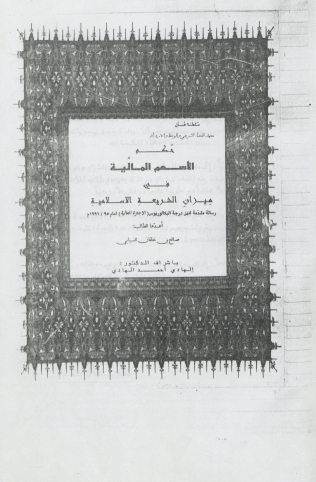 سلطنة عمان
معهد القضاء الشرعي والوعظ والارشاد
حكم
الأسهم المالية
في
ميزان الشريعة الاسلامية
رسالة مقدمة لنيل درجة البكالوريوس ( الاجازة العالية ) لعام ٩٥ / ١٩٩٦م
أعدها الطالب:
صالح بن خلفان
باشراف الدكتور :
الهادي أحمد الهادي